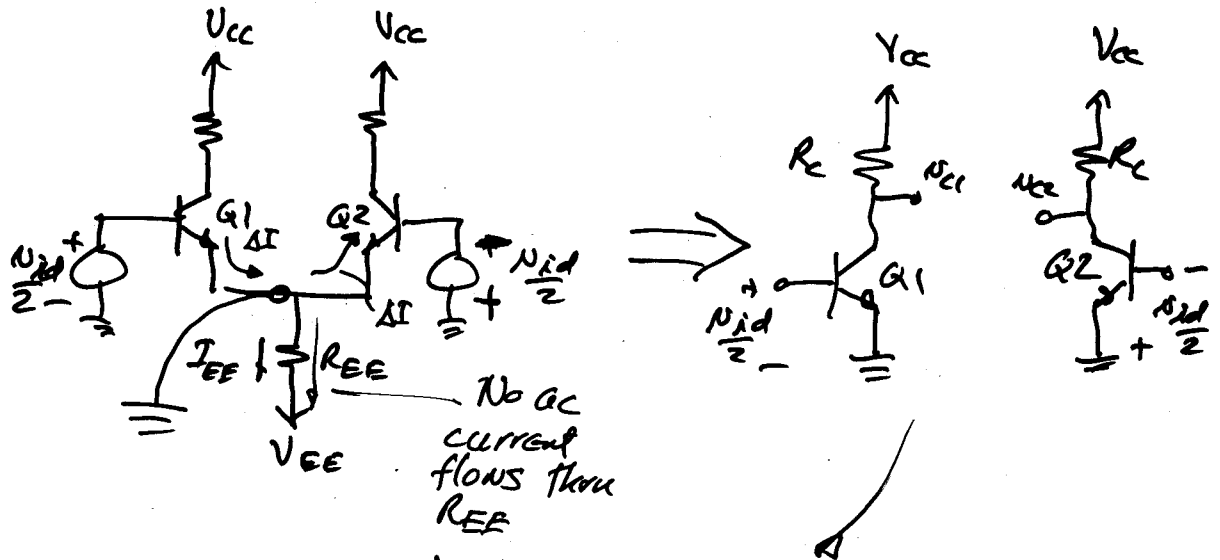 VCC
VCC
Q1
Q2
ΔI
ΔI
+
vid/2
-
-
vid/2
+
IEE
REE
VEE
No ac
current
flows thru
REE
VCC
VCC
RC
RC
vC1
vC2
Q1
Q2
+
vid/2
-
-
vid/2
+